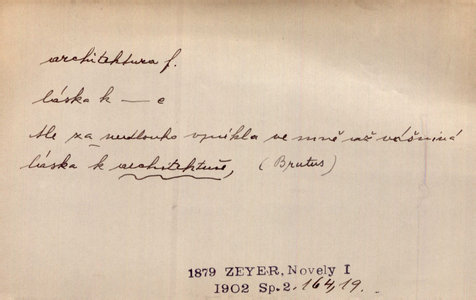 architektura f.
láska k — e
Ale za nedlouho vznikla ve mně až vášnivá
láska k architektuře, (Brutus)
1879 ZEYER, Novely I
1902 Sp. 2. 164, 19.